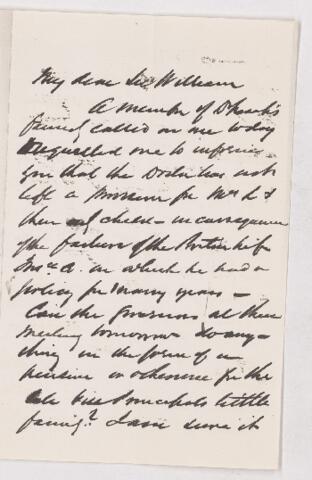 My dear Sir William
A member of Dr 
family called on me today
& requested me to inform
you that the Doctor has not
left a provision for Mrs L &
their child - in consequence
of the failure of the British Life
Insce. A. in which he had a
policy for many years -
Can the Governors at their
meeting tomorrow do any-
thing in the form of a
pension or otherwise for the
late Vice Principals little
family? I am sure it